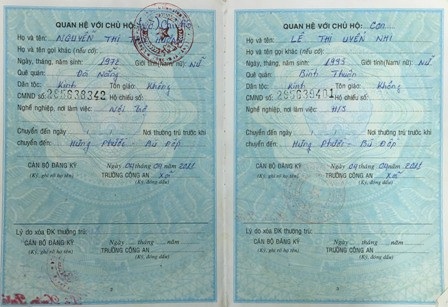 QUAN HỆ VỚI CHỦ HỘ:
Họ và tên: NGUYỄN THỊ
Họ và tên gọi khác (nếu có):
Ngày, tháng, năm sinh: 1972 Giới tính (Nam/nữ): Nữ
Quê quán: Đà Nẵng
Dân tộc: Kinh Tôn giáo: Không
CMND số: Hộ chiếu số:
Nghề nghiệp, nơi làm việc: Nội trợ
Chuyển đến ngày Nơi thường trú trước khi
chuyển đến: Hưng Phước - Bù Đốp
Ngày tháng năm
CÁN BỘ ĐĂNG KÝ TRƯỞNG CÔNG AN Xã
(Ký, ghi rõ họ tên) (Ký, đóng dấu)
Lý do xóa ĐK thường trú:
Ngày tháng năm
CÁN BỘ ĐĂNG KÝ TRƯỞNG CÔNG AN
(Ký, ghi rõ họ tên) (Ký, đóng dấu)
QUAN HỆ VỚI CHỦ HỘ: Con
Họ và tên: LÊ THỊ UYỂN NHI
Họ và tên gọi khác (nếu có):
Ngày, tháng, năm sinh: 1995 Giới tính (Nam/nữ): Nữ
Quê quán: Bình Thuận
Dân tộc: Kinh Tôn giáo: Không
CMND số: Hộ chiếu số:
Nghề nghiệp, nơi làm việc: H/S
Chuyển đến ngày Nơi thường trú trước khi
chuyển đến: Hưng Phước - Bù Đốp
Ngày tháng năm
CÁN BỘ ĐĂNG KÝ TRƯỞNG CÔNG AN Xã
(Ký, ghi rõ họ tên) (Ký, đóng dấu)
Lý do xóa ĐK thường trú:
Ngày tháng năm
CÁN BỘ ĐĂNG KÝ TRƯỞNG CÔNG AN
(Ký, ghi rõ họ tên) (Ký, đóng dấu)